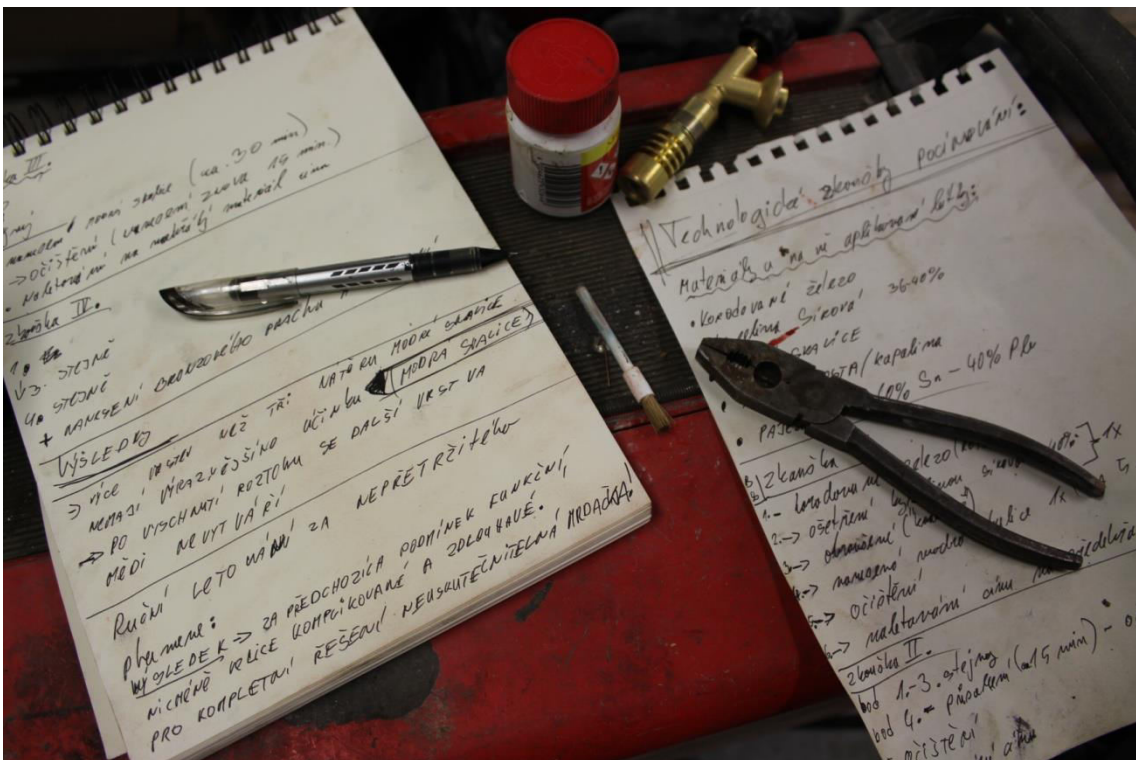 III.
(ca. 30 min)
→ očištění (nanoření znova 15 min.)
• Naletování na materiál cínu
zkouška IV.
1.
↓3. STEJNĚ
4. STEJNĚ
+ NANESENÍ BRONZOVÉHO PRACHU
VÝSLEDKY
→ VÍCE VRSTEV NEŽ TŘI NÁTĚRU MODRÉ SKALICE
NEMAJÍ VÝRAZNĚJŠÍHO ÚČINKU (MODRÁ SKALICE)
→ PO VYSCHNUTÍ ROZTOKU SE DALŠÍ VRSTVA
MĚDI NEVYTVÁŘÍ
Ruční LETOVÁNÍ ZA NEPŘETRŽITÉHO
plamene:
VÝSLEDEK → ZA PŘEDCHOZÍCH PODMÍNEK FUNKČNÍ,
NICMÉNĚ VELICE KOMPLIKOVANÉ A ZDLOUHAVÉ.
PRO KOMPLETNÍ ŘEŠENÍ NEUSKUTEČNITELNÁ MRDAČKA!
Technologické zkoušky pocínování:
Materiály a na ně aplikované látky:
• korodované železo
sírová 36-40%
SKALICE
/kapalina
60% Sn - 40% Pb
• PÁJE
Zkouška
1x
1.- korodované železo
40%
2.→ ošetření kyselinou sírovou
3.→
1x
4.→ naneseno modré skalice
5.→ očištění
6.→ naletování cínu
zkouška II.
bod 1.-3. stejný
bod 4.- působení (ca 15 min) -
očištění
cínu